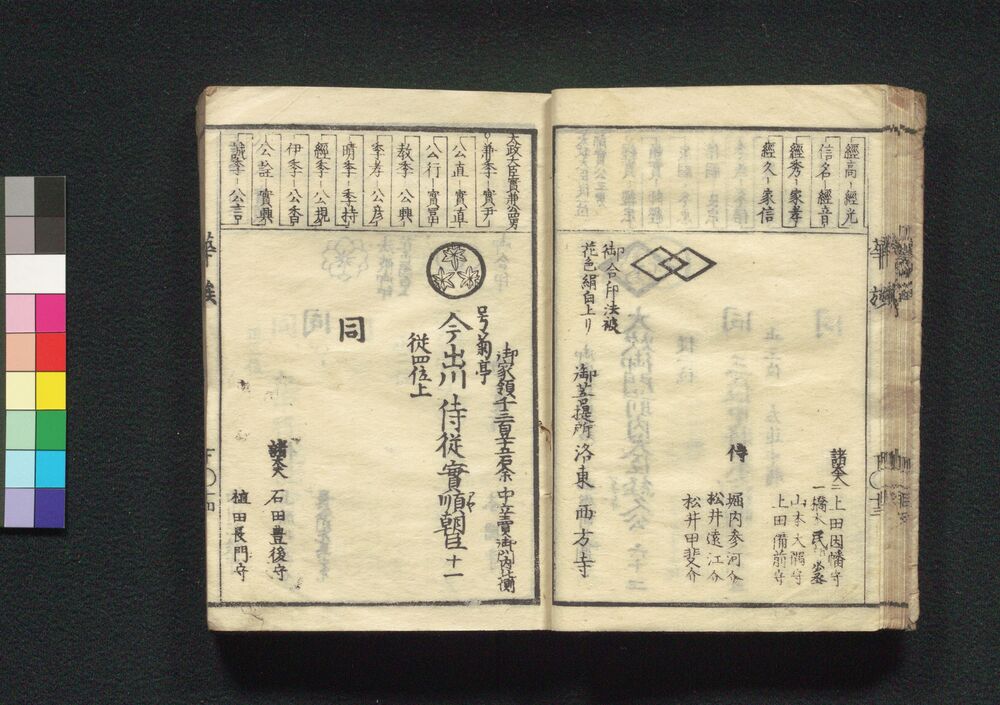 經高 經光
信名 經音
經秀 家孝
經久 家信
諸大夫
上田因幡守
一橋木民
山本大隅守
上田備前守
侍
堀内参河介
松井遠江介
松井甲斐介
御合印法被
花色絹白上り
御菩提所 洛東西方寺
華族
太政大臣實兼公男
兼季 實尹
公直 實直
公行 實冨
教季 公興
季孝 公彦
晴季 季持
經季 公規
伊季 公香
公詮 實興
誠季 公言
御家領千三百五十五石余 中立賣御門内北側
号菊亭
今出川侍從實順朝臣 十一
從四位上
同
諸大夫
石田豊後守
植田長門守
華族